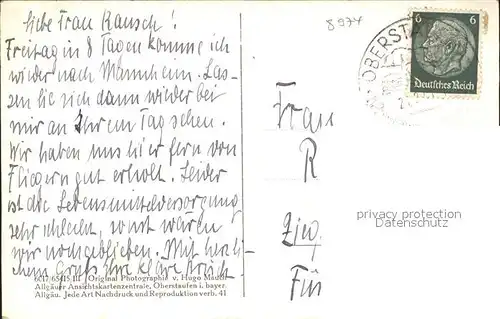 Liebe Frau Rausch!
Freitag in 8 Tagen komme ich
wieder nach Mannheim. Las-
sen Sie sich dann wieder bei
mir an Ihrem Tag sehen.
Wir haben uns hier fern von
Fliegern gut erholt. Leider
ist die Lebensmittelversorgung
sehr schlecht, sonst wären
wir noch geblieben. Mit herzli-
chem Gruß Ihre
6017/65/15 III Original Photographie v. Hugo
Allgäuer Ansichtskartenzentrale, Oberstaufen i. bayer.
Allgäu. Jede Art Nachdruck und Reproduktion verb. 41
8974
OBERSTA
6 6
Deutsches Reich
Frau
R
privacy protection